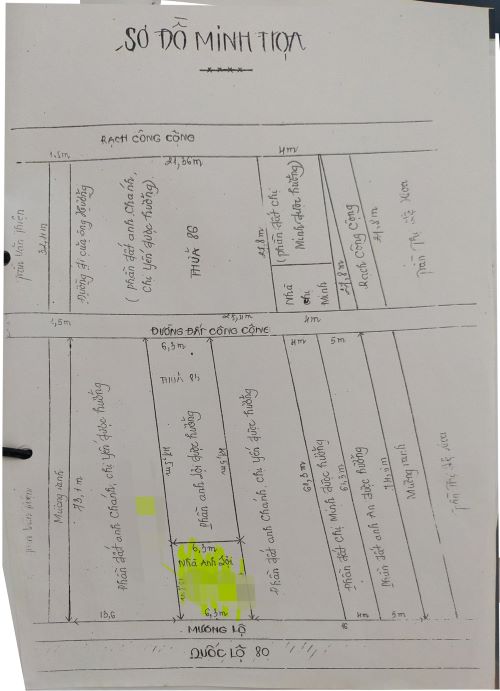 SƠ ĐỒ MINH HỌA
RẠCH CÔNG CỘNG
1,5m
21,36m
4m
Trần Văn Thiện
32,4m
Đường đi của ông Hưởng
(phần đất anh Chánh,
Chị Yến được hưởng)
THỬA 86
27,8m
(phần đất chị
Minh được hưởng)
Nhà chị
Minh
27,8m
Rạch Công Cộng
27,8m
Trần Thị Lệ Hoa
1,5m
25,4m
4m
ĐƯỜNG ĐẤT CÔNG CỘNG
6,3m
4m
5m
Mương ranh
73,1m
Phần đất anh Chánh, chị Yến được hưởng
THỬA 84
Phần anh Lôi được hưởng
Phần đất anh Chánh, chị Yến được hưởng
Phần đất chị Minh được hưởng
Phần đất anh An được hưởng
Mương ranh
6,3m
Nhà Anh Lôi
13,6
6,3m
4m
5m
MƯƠNG LỘ
QUỐC LỘ 80